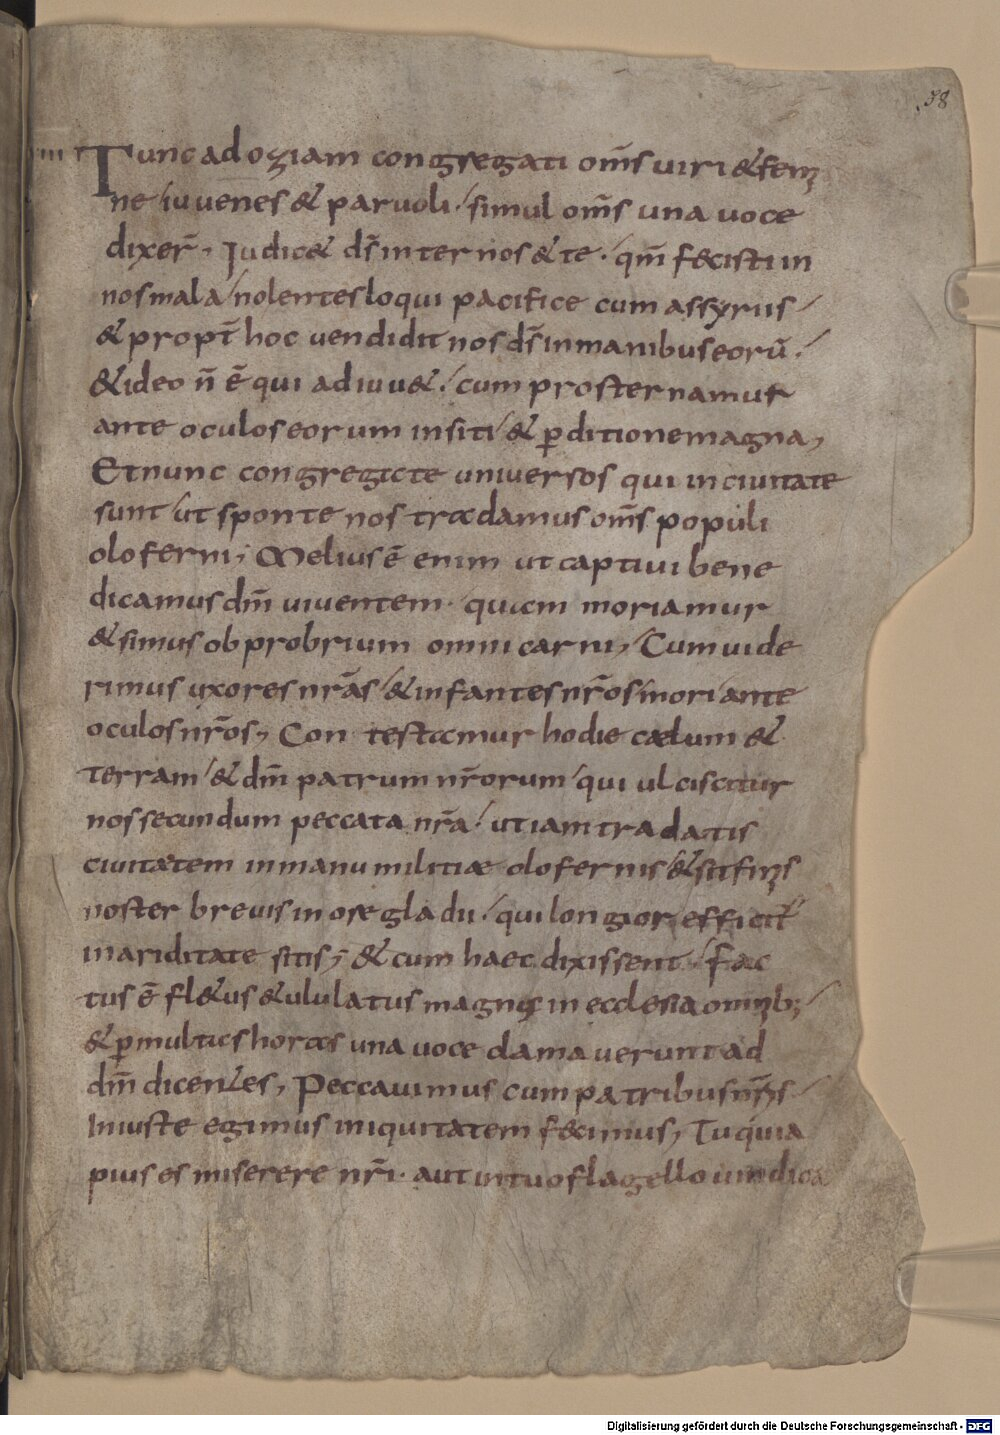 58
IIII Tunc ad oziam congregati om̅s uiri & femi
ne / iuuenes & paruoli ./ simul om̅s una uoce
dixer̅ . Iudic& d̅s inter nos & te ./ qm̅ fecisti in
nos mala / nolentes loqui pacifice cum assyriis /
& propt̅ hoc uendidit nos d̅s in manibus eoru̅ ./
& ideo n̅ e̅ qui adiuu& ./ cum prosternamur
ante oculos eorum in siti / & p̱ditione magna,
Et nunc congregate uniuersos qui in ciuitate
sunt / ut sponte nos tradamus om̅s populi
oloferni; Melius e̅ enim ut captiui bene
dicamus dm̅ uiuentem . quam moriamur
& simus obprobrium omni carni, / Cum uide
rimus uxores nr̅as / & infantes nr̅os mori ante
oculos nr̅os, Contestamur hodie cælum &
terram / & dm̅ patrum nr̅orum / qui ulciscitur
nos secundum peccata nr̅a ./ ut iam tradatis
ciuitatem in manu militiæ olofernis / & sit finis
noster breuis in ore gladii ./ qui longior efficit̅
in ariditate sitis; & cum haec dixissent ./ fac
tus e̅ fl&us & ululatus magnus in ecclesia omnib; /
& p̱ multas horas una uoce clamauerunt ad
dm̅ dicentes, Peccauimus cum patribus nr̅is /
Iniuste egimus iniquitatem fecimus, Tu quia
pius es miserere nr̅i . aut in tuo flagello uindica
Digitalisierung gefördert durch die Deutsche Forschungsgemeinschaft - DFG